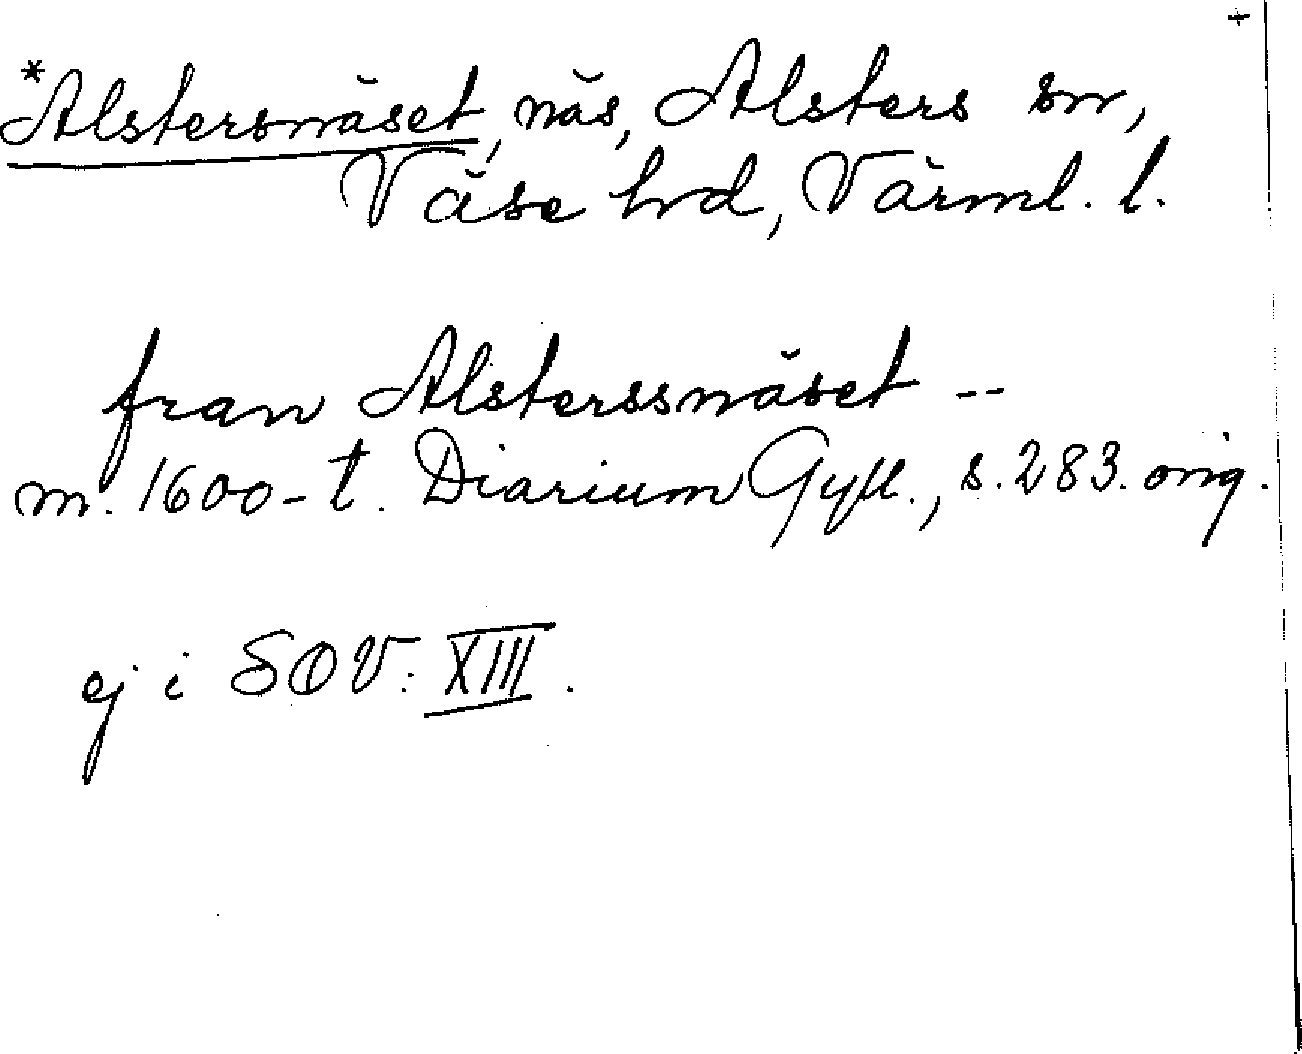 +
*Alstersnäset, näs, Alsters sn,
Väse hrd, Värml. l.
fran Alsterssnäset --
m. 1600-t. Diarium Gyll., s. 283. orig.
ej i SOV: XIII.